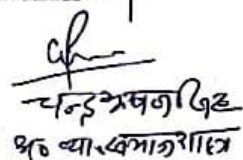 चन्द्रभूषण सिंह
प्र० व्या. समाजशास्त्र